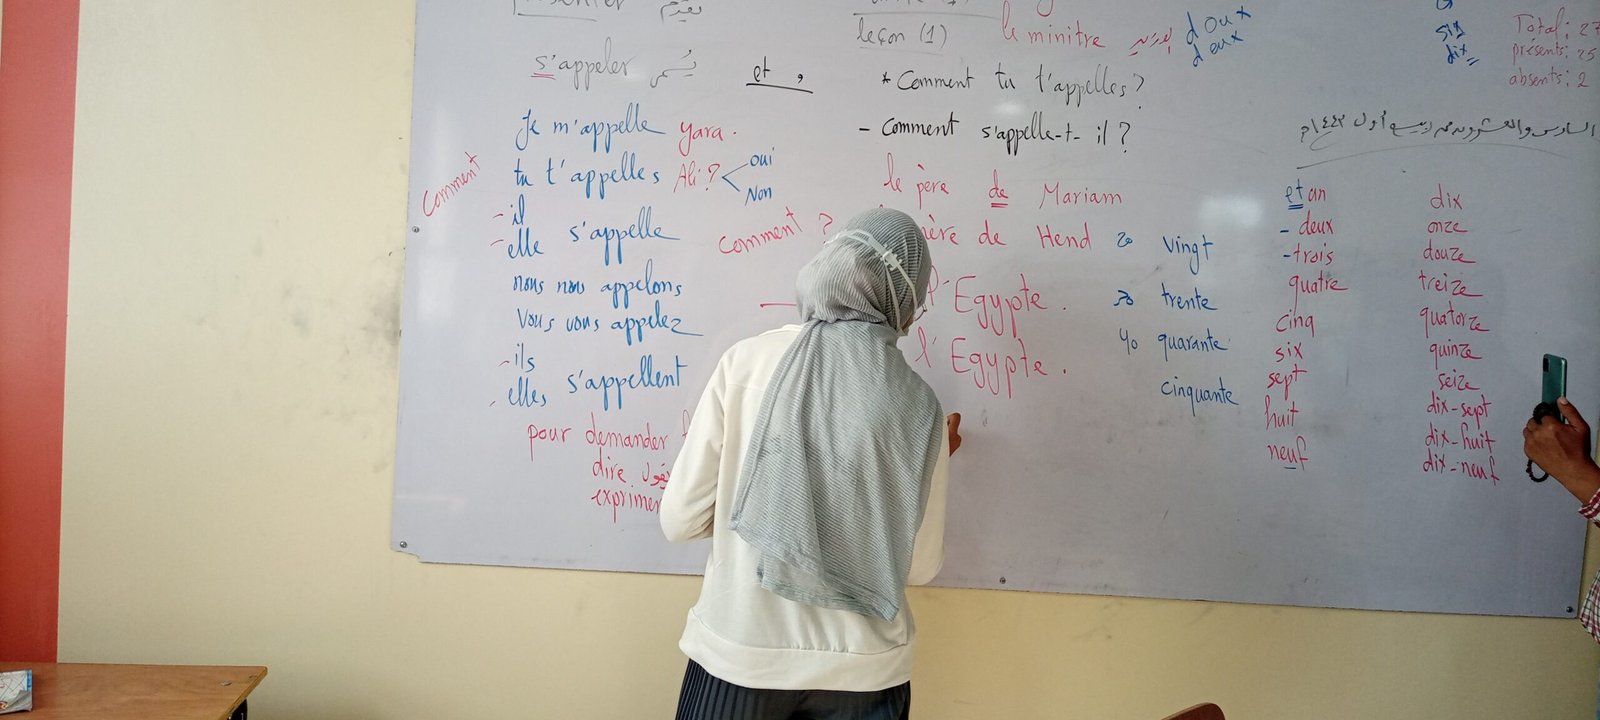 s'appeler يُسمى
Je m'appelle yara.
Comment
tu t'appelles Ali?
oui
Non
- il
- elle s'appelle
nous nous appelons
Vous vous appelez
- ils
- elles s'appellent
pour demander
dire
exprimer
leçon (1)
le minitre
doux
deux
et ,
* Comment tu t'appelles?
- Comment s'appelle-t-il?
le père de Mariam
Comment ?
de Hend
l'Egypte.
l'Egypte.
20 vingt
30 trente
40 quarante
cinquante
six
dix
Total: 27
présents: 25
absents: 2
et un
- deux
- trois
quatre
cinq
six
sept
huit
neuf
dix
onze
douze
treize
quatorze
quinze
seize
dix-sept
dix-huit
dix-neuf